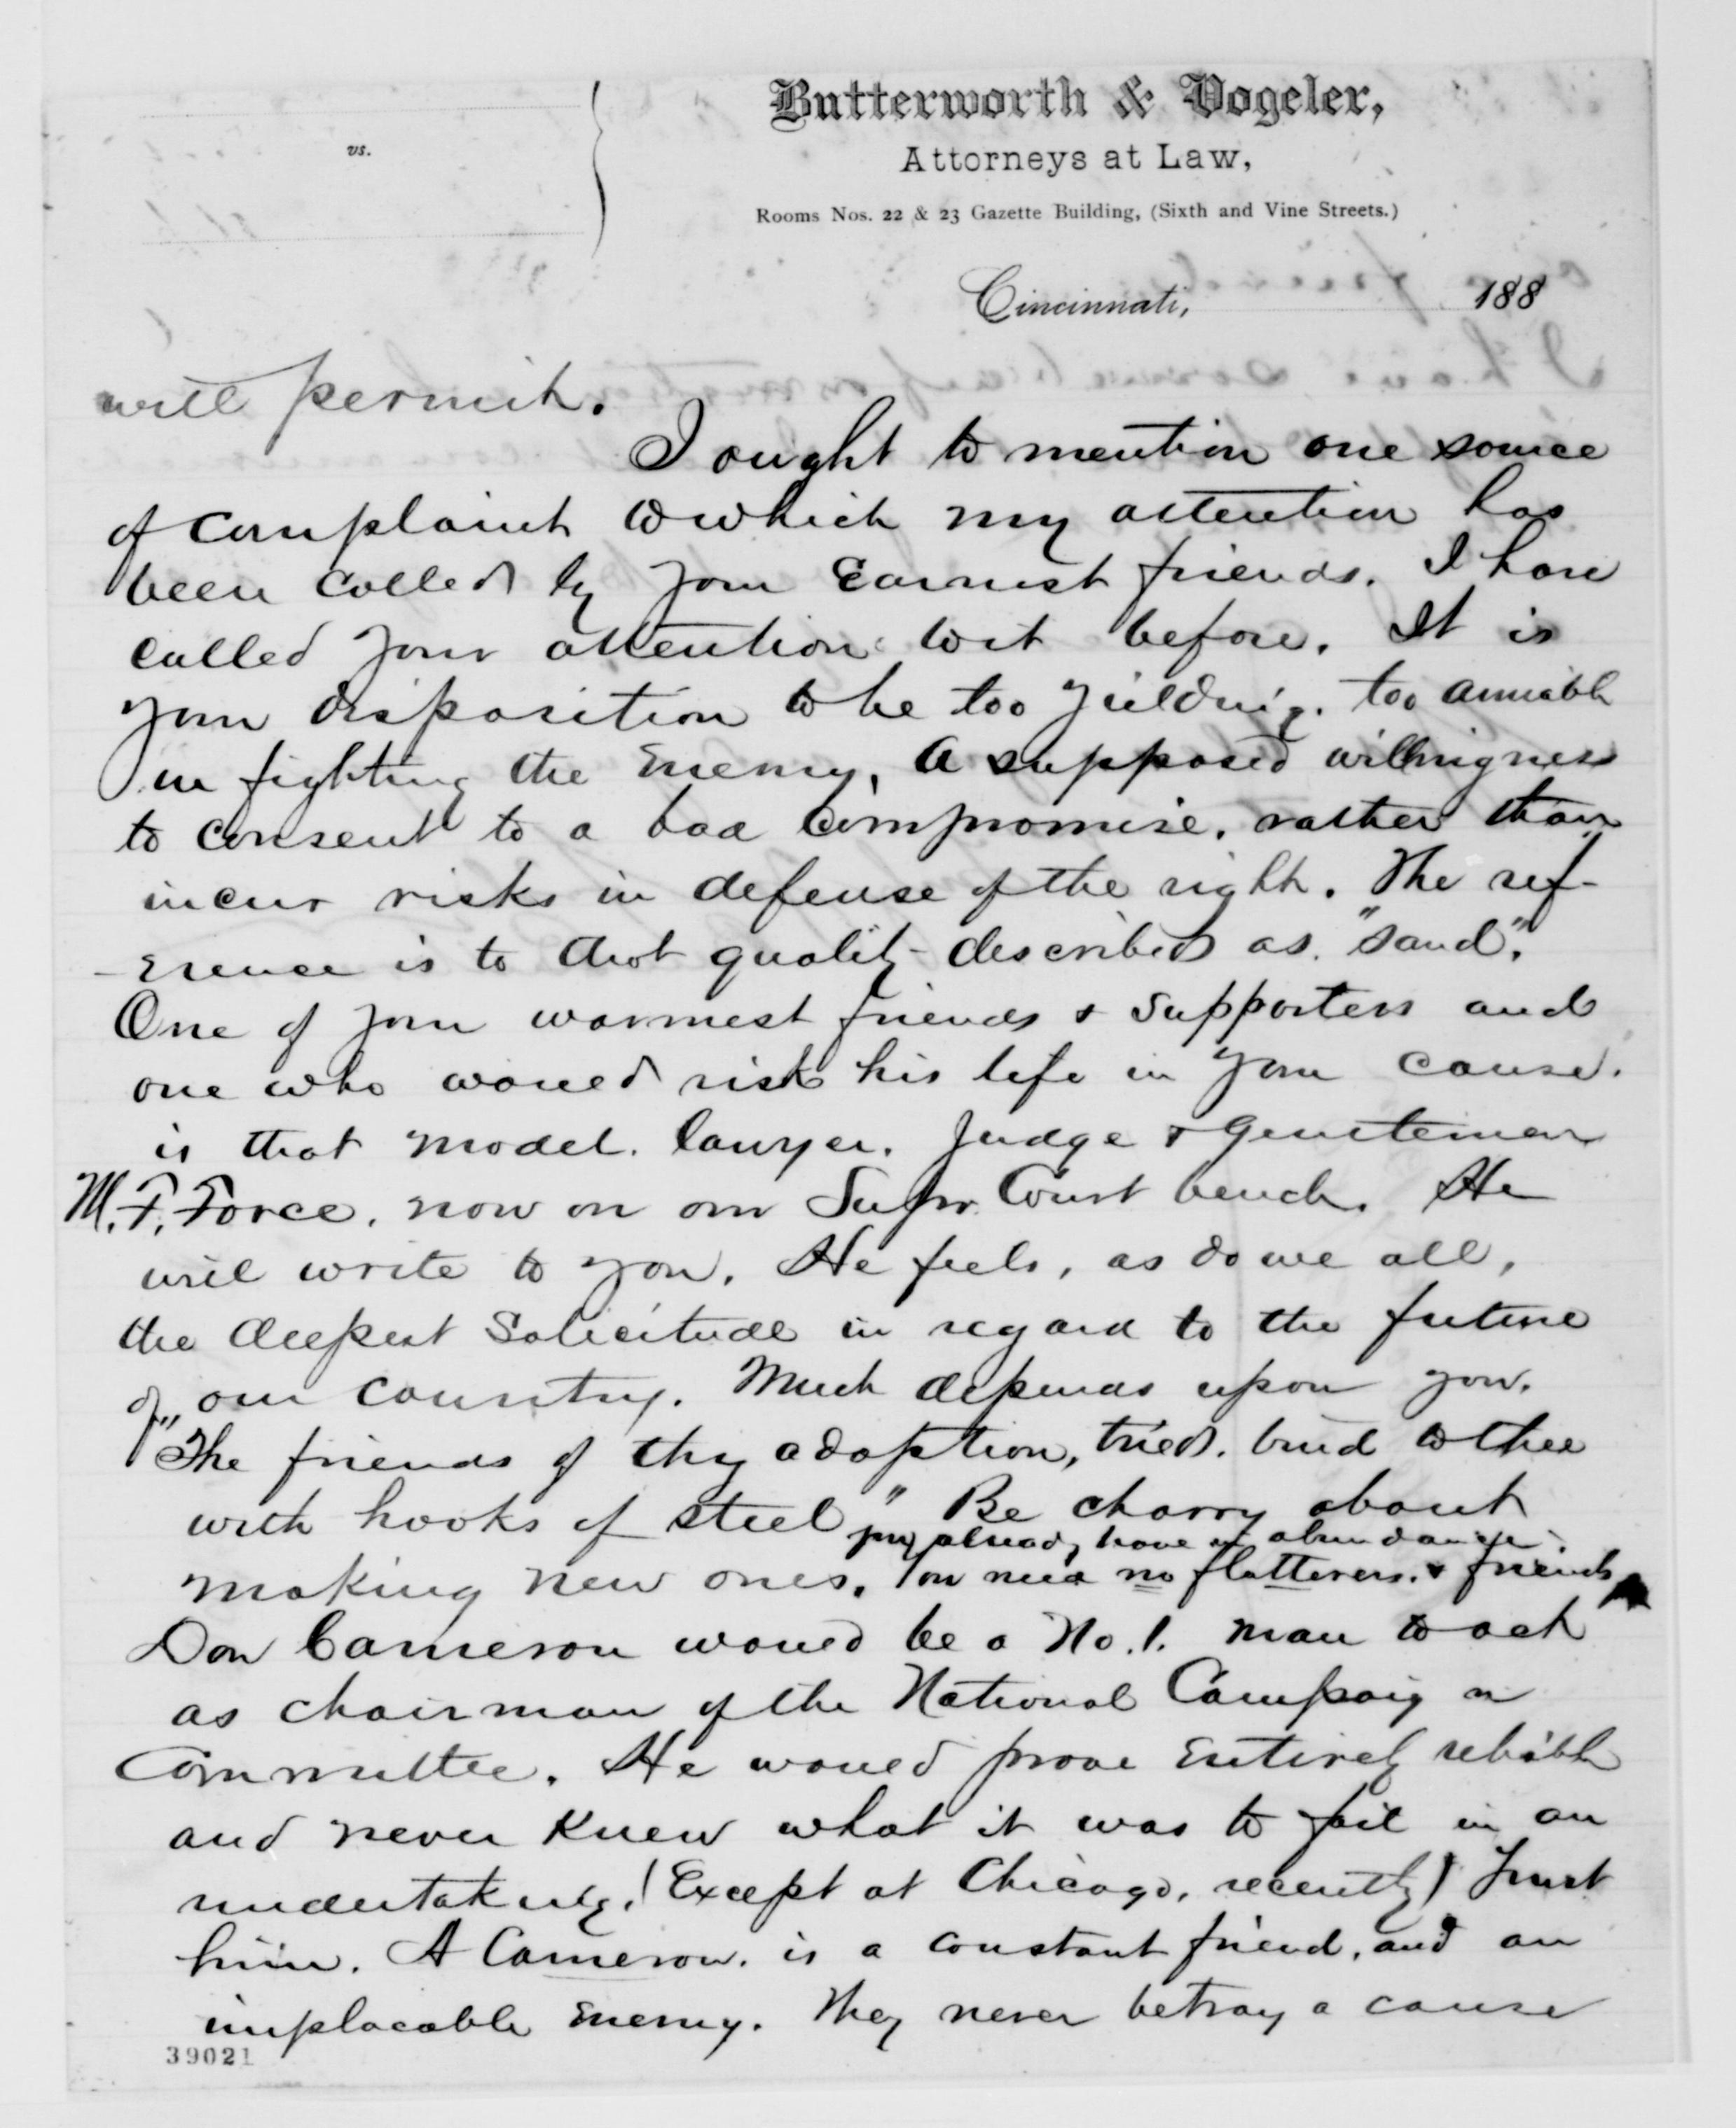 Butterworth & Vogeler,
Attorneys at Law,
vs.
Rooms Nos. 22 & 23 Gazette Building, (Sixth and Vine Streets.)
Cincinnati, 188
will permit.
I ought to mention one source
of complaint to which my attention has
been called by your Earnest friends. I have
called your attention to it before. It is
your disposition to be too yielding. too amiable
in fighting the Enemy, A supposed willingness
to consent to a bad Compromise. rather than
incur risks in defense of the right. The ref-
-erence is to that quality described as "sand".
One of your warmest friends & supporters and
one who would risk his life in your cause.
is that model. lawyer. Judge & Gentleman
M.F. Force. now on our Supr. Court bench. He
will write to you. He feels, as do we all,
the deepest Solicitude in regard to the future
of our Country. Much depends upon you.
"The friends of thy adoption, tried. bind to thee
with hooks of steel" Be charry about
you already have in abundance.
making new ones. You need no flatterers. & friends
Don Cameron would be a No. 1. man to act
as chairman of the National Campaign
Committee. He would prove Entirely reliable
and never Knew what it was to fail in an
undertaking. (Except at Chicago, recently) Trust
him. A Cameron. is a constant friend, and an
implacable Enemy. They never betray a cause
39021